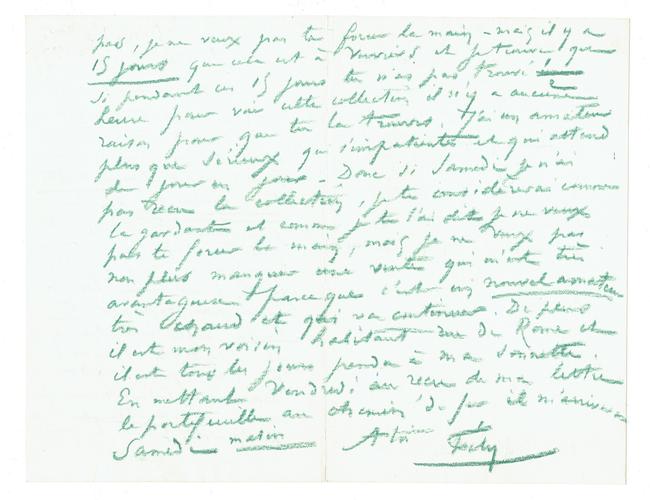 pas, je ne veux pas te forcer la main - mais il y a
15 jours que cela est à Verviers, et je trouve que
si pendant ces 15 jours tu n'as pas trouvé
heure pour voir cette collection il n'y a aucune
raison pour que tu la trouves. J'ai un amateur
plus que sérieux qui s'impatiente et qui attend
de jour en jour - Donc si Samedi je n'ai
pas reçu la collection, je te considérerai comme
la gardant et comme je te l'ai dit je ne veux
pas te forcer la main, mais je ne veux pas
non plus manquer une vente qui m'est très
avantageuse parce que c'est un nouvel amateur
très chaud et qui va continuer. De plus
il est mon voisin habitant rue de Rome et
il est tous les jours pendu à ma sonnette.
En mettant Vendredi au reçu de ma lettre
le portefeuille au chemin de fer il m'arrivera
Samedi matin
A toi